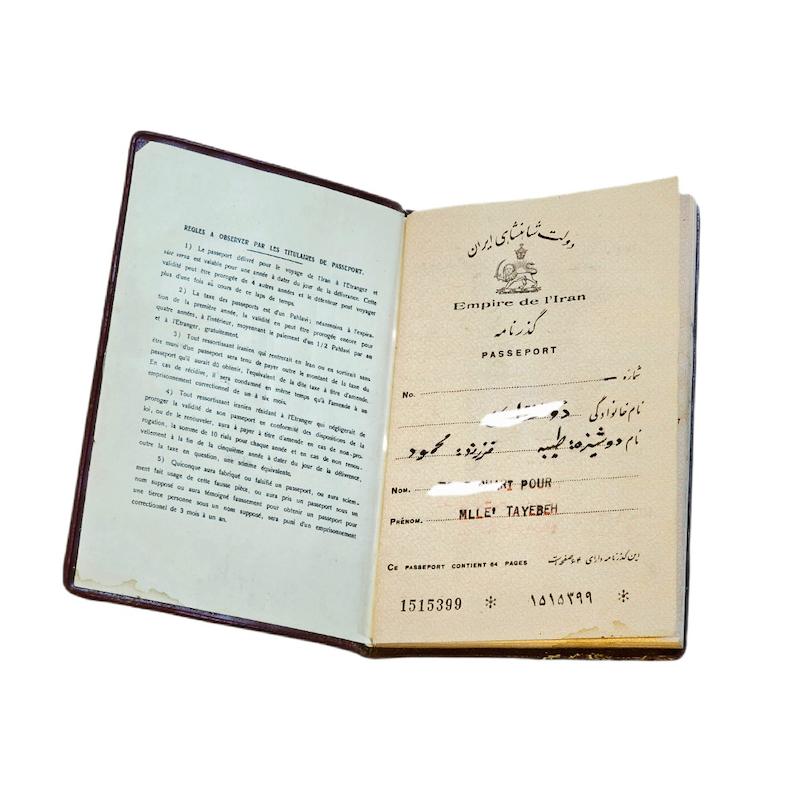 RÈGLES A OBSERVER PAR LES TITULAIRES DE PASSEPORT.
1) Le passeport délivré pour le voyage de l'Iran à l'Etranger et
vice versa est valable pour une année à dater du jour de la délivrance. Cette
validité peut être prorogée de 4 autres années et le détenteur peut voyager
plus d'une fois au cours de ce laps de temps.
2) La taxe des passeports est d'un Pahlavi; néanmoins à l'expira-
tion de la première année, la validité en peut être prorogée encore pour
quatre années, à l'intérieur, moyennant le paiement d'un 1/2 Pahlavi par an
et à l'Etranger, gratuitement.
3) Tout ressortissant iranien qui rentrerait en Iran ou en sortirait sans
être muni d'un passeport sera tenu de payer outre le montant de la taxe du
passeport qu'il aurait dû obtenir, l'équivalent de la dite taxe à titre d'amende.
En cas de récidive, il sera condamné en même temps qu'à l'amende à un
emprisonnement correctionnel de un à six mois.
4) Tout ressortissant iranien résidant à l'Etranger qui négligerait de
proroger la validité de son passeport en conformité des dispositions de la
loi, ou de le renouveler, aura à payer à titre d'amende en cas de non-pro-
rogation, la somme de 10 rials pour chaque année et en cas de non renou-
vellement à la fin de la cinquième année à dater du jour de la délivrance,
outre la taxe en question, une somme équivalente.
5) Quiconque aura fabriqué ou falsifié un passeport, ou aura sciem-
ment fait usage de cette fausse pièce, ou aura pris un passeport sous un
nom supposé ou aura témoigné faussement pour obtenir un passeport pour
une tierce personne sous un nom supposé, sera puni d'un emprisonnement
correctionnel de 3 mois à un an.
دولت شاهنشاهی ایران
Empire de l'Iran
گذرنامه
PASSEPORT
شماره
No.
نام خانوادگی
نام دوشیزه: طیبه فرزند: محمود
Nom. POUR
Prénom. MLLE' TAYEBEH
CE PASSEPORT CONTIENT 64 PAGES این گذرنامه دارای ۶۴ صفحه است
1515399 * ۱۵۱۵۳۹۹ *